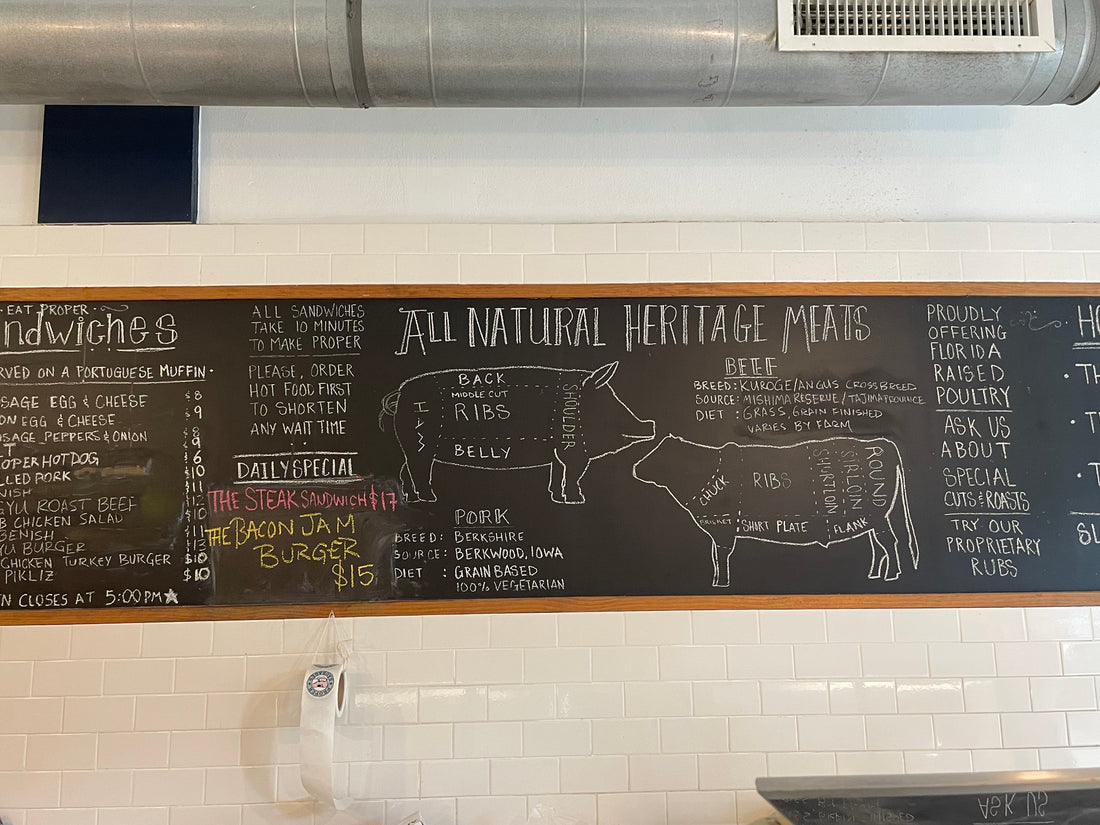 · EAT PROPER ·
ndwiches
RVED ON A PORTUGUESE MUFFIN ·
SAGE EGG & CHEESE $8
ON EGG & CHEESE $9
SAGE, PEPPERS & ONION
T $9
OPER HOT DOG $6
LLED PORK $10
NISH
GYU ROAST BEEF
B CHICKEN SALAD $10
BENISH $11
YU BURGER $13
CHICKEN TURKEY BURGER $10
PIKLIZ $10
N CLOSES AT 5:00 PM
ALL SANDWICHES
TAKE 10 MINUTES
TO MAKE PROPER
PLEASE, ORDER
HOT FOOD FIRST
TO SHORTEN
ANY WAIT TIME
DAILY SPECIAL
THE STEAK SANDWICH $17
THE BACON JAM
BURGER
$15
ALL NATURAL HERITAGE MEATS
BACK
MIDDLE CUT
RIBS
BELLY
HAM
SHOULDER
PORK
BREED: BERKSHIRE
SOURCE: BERKWOOD, IOWA
DIET : GRAIN BASED
100% VEGETARIAN
BEEF
BREED: KUROGE/ANGUS CROSSBREED
SOURCE: MISHIMA RESERVE / TAJIMA PROVINCE
DIET : GRASS, GRAIN FINISHED
VARIES BY FARM
CHUCK
RIBS
SHORTLOIN
SIRLOIN
ROUND
BRISKET
SHORT PLATE
FLANK
PROUDLY
OFFERING
FLORIDA
RAISED
POULTRY
ASK US
ABOUT
SPECIAL
CUTS & ROASTS
TRY OUR
PROPRIETARY
RUBS
HO
· TH
· T
· T
SL
ASK US